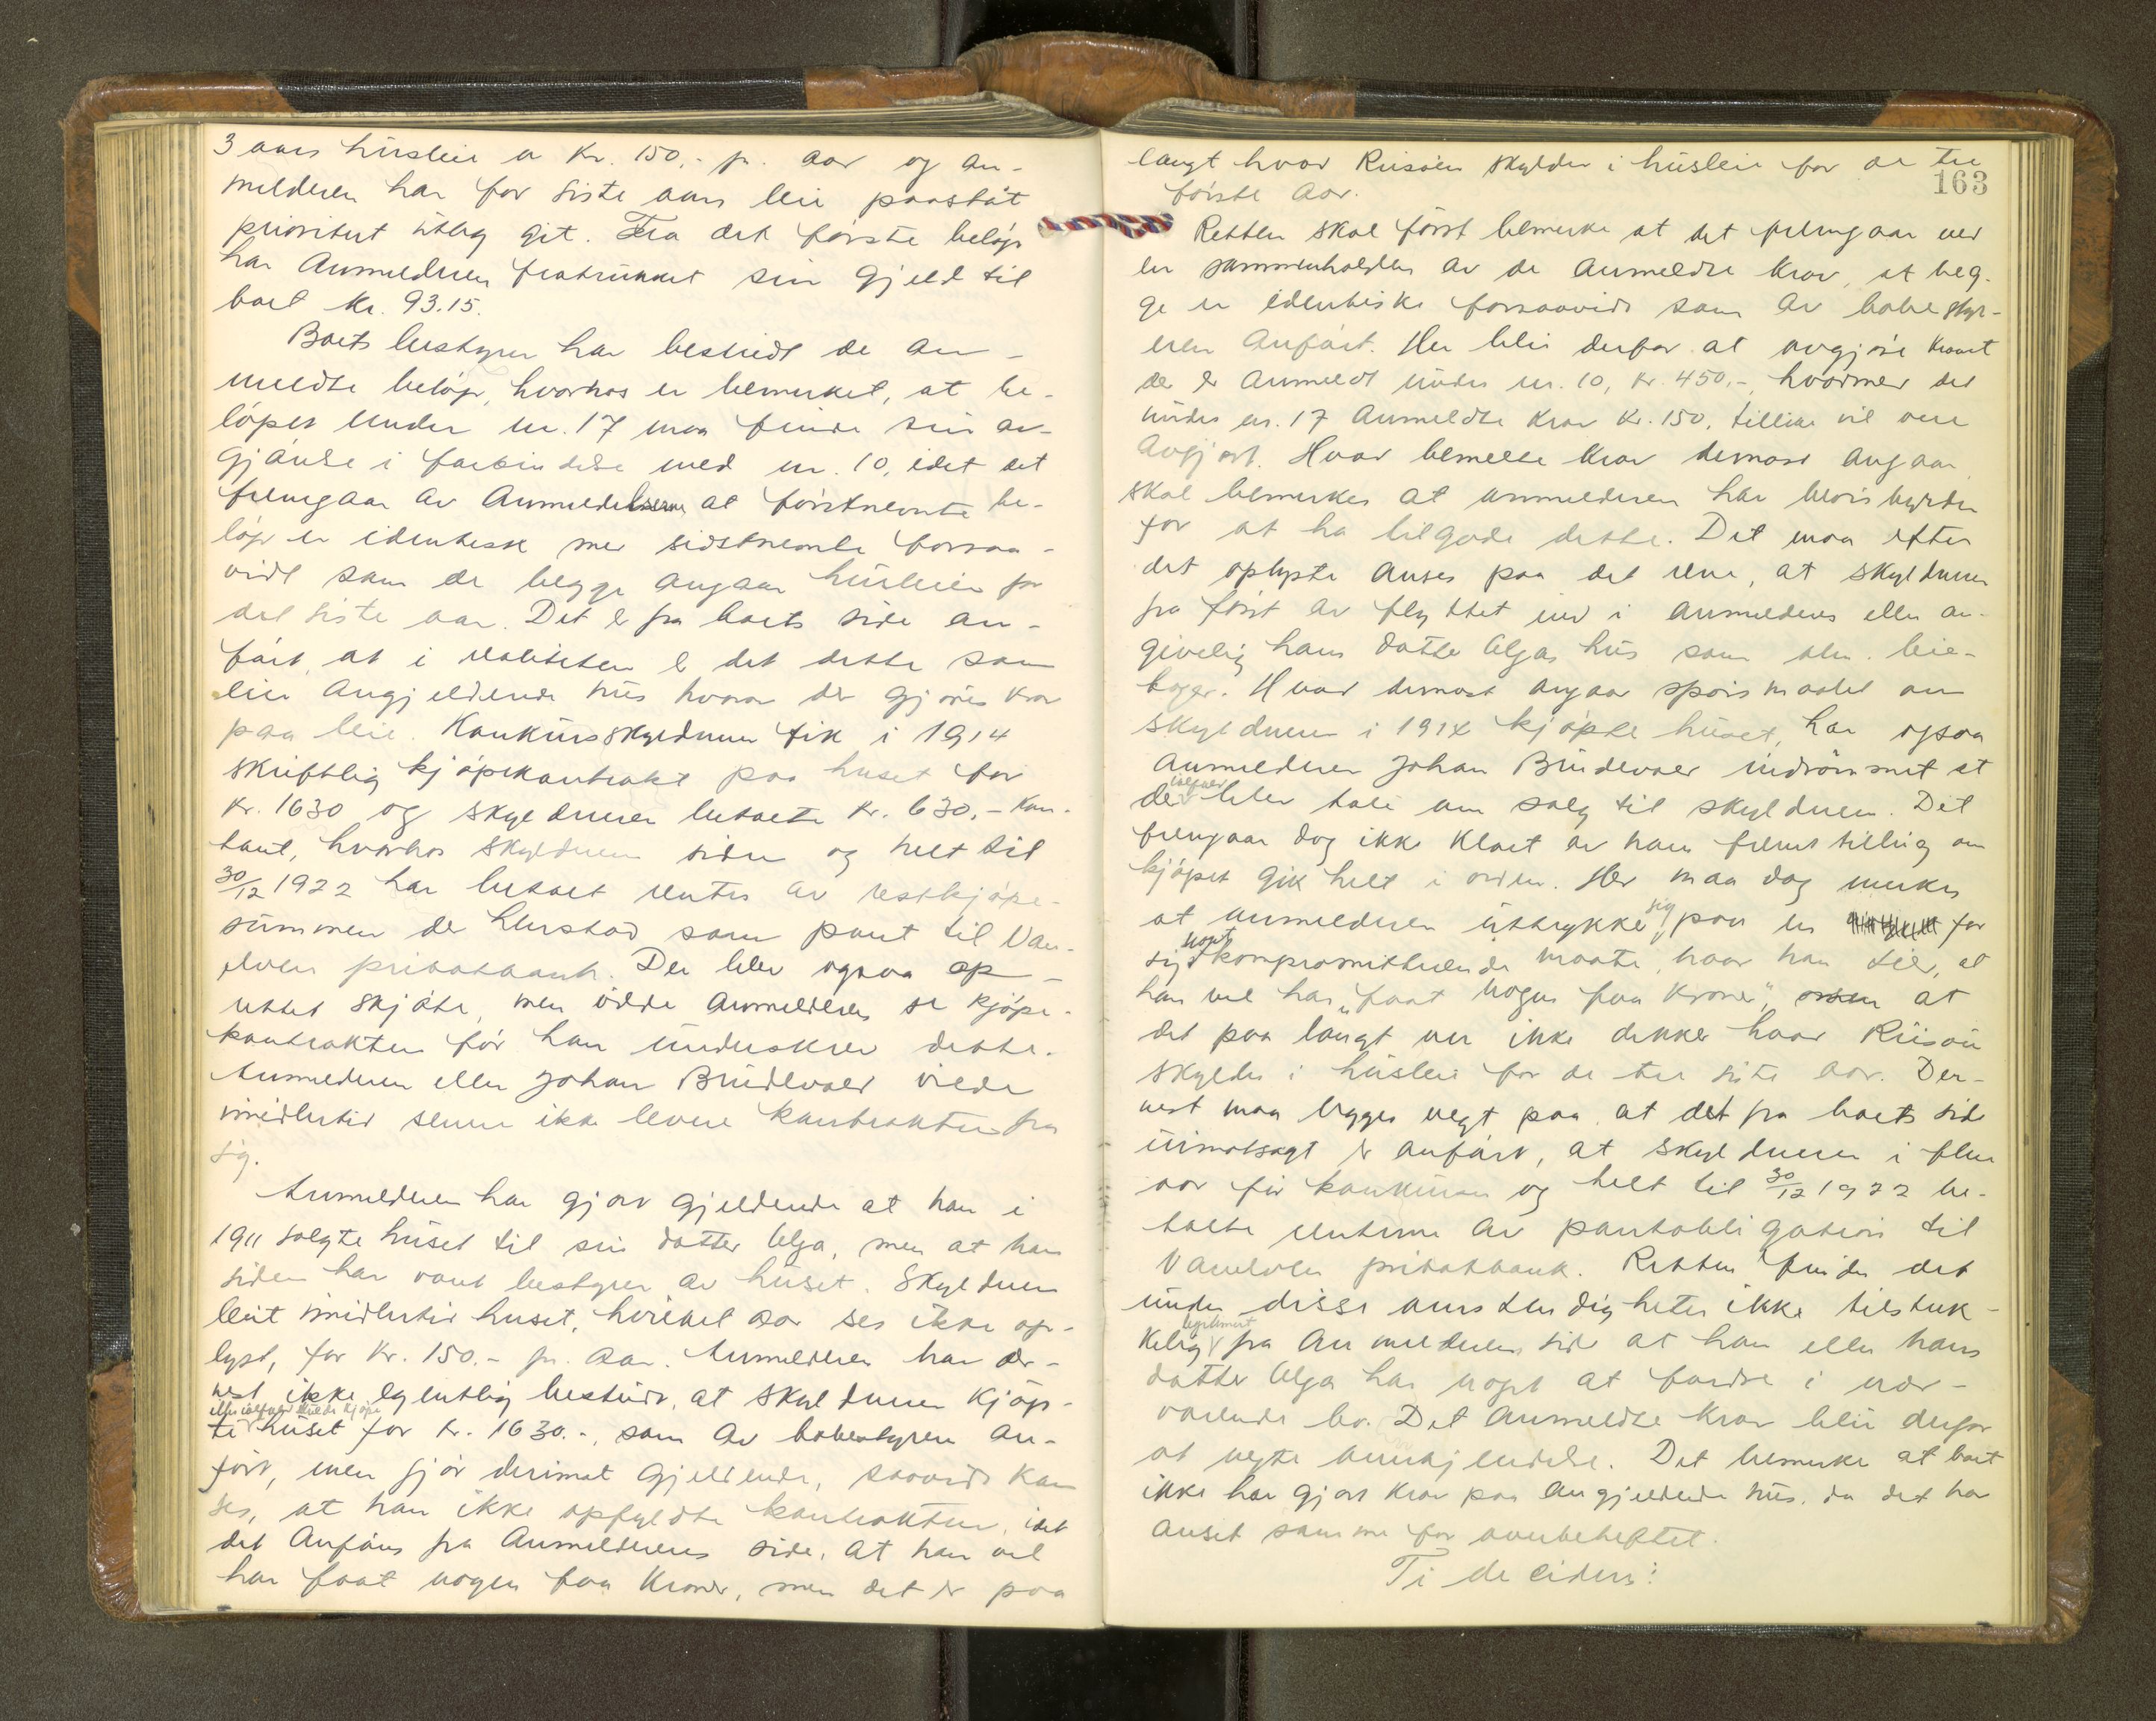 3 aars husleie a Kr. 150,- pr. aar og an-
melderen har for siste aars leie paastat
prioritert utlæg git. Fra det første beløp
har Anmelderen fratrukket sin gjeld til
boet Kr. 93.15.
Boets bestyrer har bestridt de an-
meldte beløp, hvorhos er bemerket, at be-
løpet under nr. 17 maa finde sin av-
gjørelse i forbindelse med nr. 10, idet det
fremgaar av Anmeldelserne at førstnevnte be-
løp er identisk med sidstnevnte forsaa-
vidt som de begge angaar husleien for
det siste aar. Det er fra boets side an-
ført, at i realiteten er det dette som
eier Angjeldende hus hvorav der gjøres krav
paa leie. Konkursskyldneren fik i 1914
skriftlig kjøpekontrakt paa huset for
Kr. 1630 og skyldneren betalte Kr. 630,- kon-
tant, hvorhos skyldneren siden og helt til
30/12 1922 har betalt renter av restkjøpe-
summen der henstod som pant til Van-
elven privatbank. Der blev ogsaa op-
rettet skjøte, men vilde Anmelderen se kjøpe-
kontrakten før han underskrev dette.
Anmelderen eller Johan Brudevold vilde
imidlertid senere ikke levere kontrakten fra
sig.
Anmelderen har gjort gjeldende at han i
1911 solgte huset til sin datter Olga, men at han
siden har vært bestyrer av huset. Skyldneren
leiet imidlertid huset, hvilket aar sees ikke op-
lyst, for Kr. 150.- pr. aar. Anmelderen har der-
nest ikke egentlig bestridt, at skyldneren kjøp-
eller ialfald skulde kjøpe
te huset for Kr. 1630.-, som av bobestyreren an-
ført, men gjør derimot gjeldende, saavidt kan
sees, at han ikke opfyldte kontrakten, idet
det Anføres fra Anmelderens side, at han vel
har faat nogen faa Kroner, men det er paa
163
langt hvad Riisøen skylder i husleie for de tre
første aar.
Retten skal først bemerke at det fremgaar ved
en sammenholdelse av de anmeldte krav, at beg-
ge er identiske forsaavidt som av bobestyr-
eren Anført. Her blir derfor at avgjøre kravet
der er Anmeldt under nr. 10, Kr. 450,-, hvormed det
under nr. 17 Anmeldte krav Kr. 150, tillike vil være
avgjort. Hvad bemeldte krav dernæst angaar
skal bemerkes at anmelderen har bevisbyrden
for at ha tilgode dette. Det maa efter
det oplyste anses paa det rene, at skyldneren
fra først av flyttet ind i anmelderens eller an-
givelig hans datter Olgas hus som alm. leie-
boer. Hvad dernæst angaar spørsmaalet om
skyldneren i 1914 kjøpte huset, har ogsaa
Anmelderen Johan Brudevold indrømmet at
ialfald
der blev tale om salg til skyldneren. Det
fremgaar dog ikke klart av hans fremstilling om
kjøpet gik helt i orden. Her maa dog merkes
at anmelderen uttrykker sig paa en for
sig noget kompromitterende maate, naar han sier, at
han vel har "faat nogen faa Kroner", men at
det paa langt nær ikke dekker hvad Riisøen
skylder i husleie for de tre siste aar. Der-
nest maa lægges vegt paa at det fra boets side
uimotsagt er anført, at skyldneren i flere
aar før konkursen og helt til 30/12 1922 be-
talte renterne av pantobligation til
Vanelven privatbank. Retten finder det
under disse omstendigheter ikke tilstrek-
kelig legitimert fra Anmelderens side at han eller hans
datter Olga har noget at fordre i nær-
værende bo. Det Anmeldte krav blir derfor
at negte anerkjendelse. Det bemerkes at boet
ikke har gjort krav paa angjeldende hus, da det har
anset samme for overbeheftet.
Ti decideres: